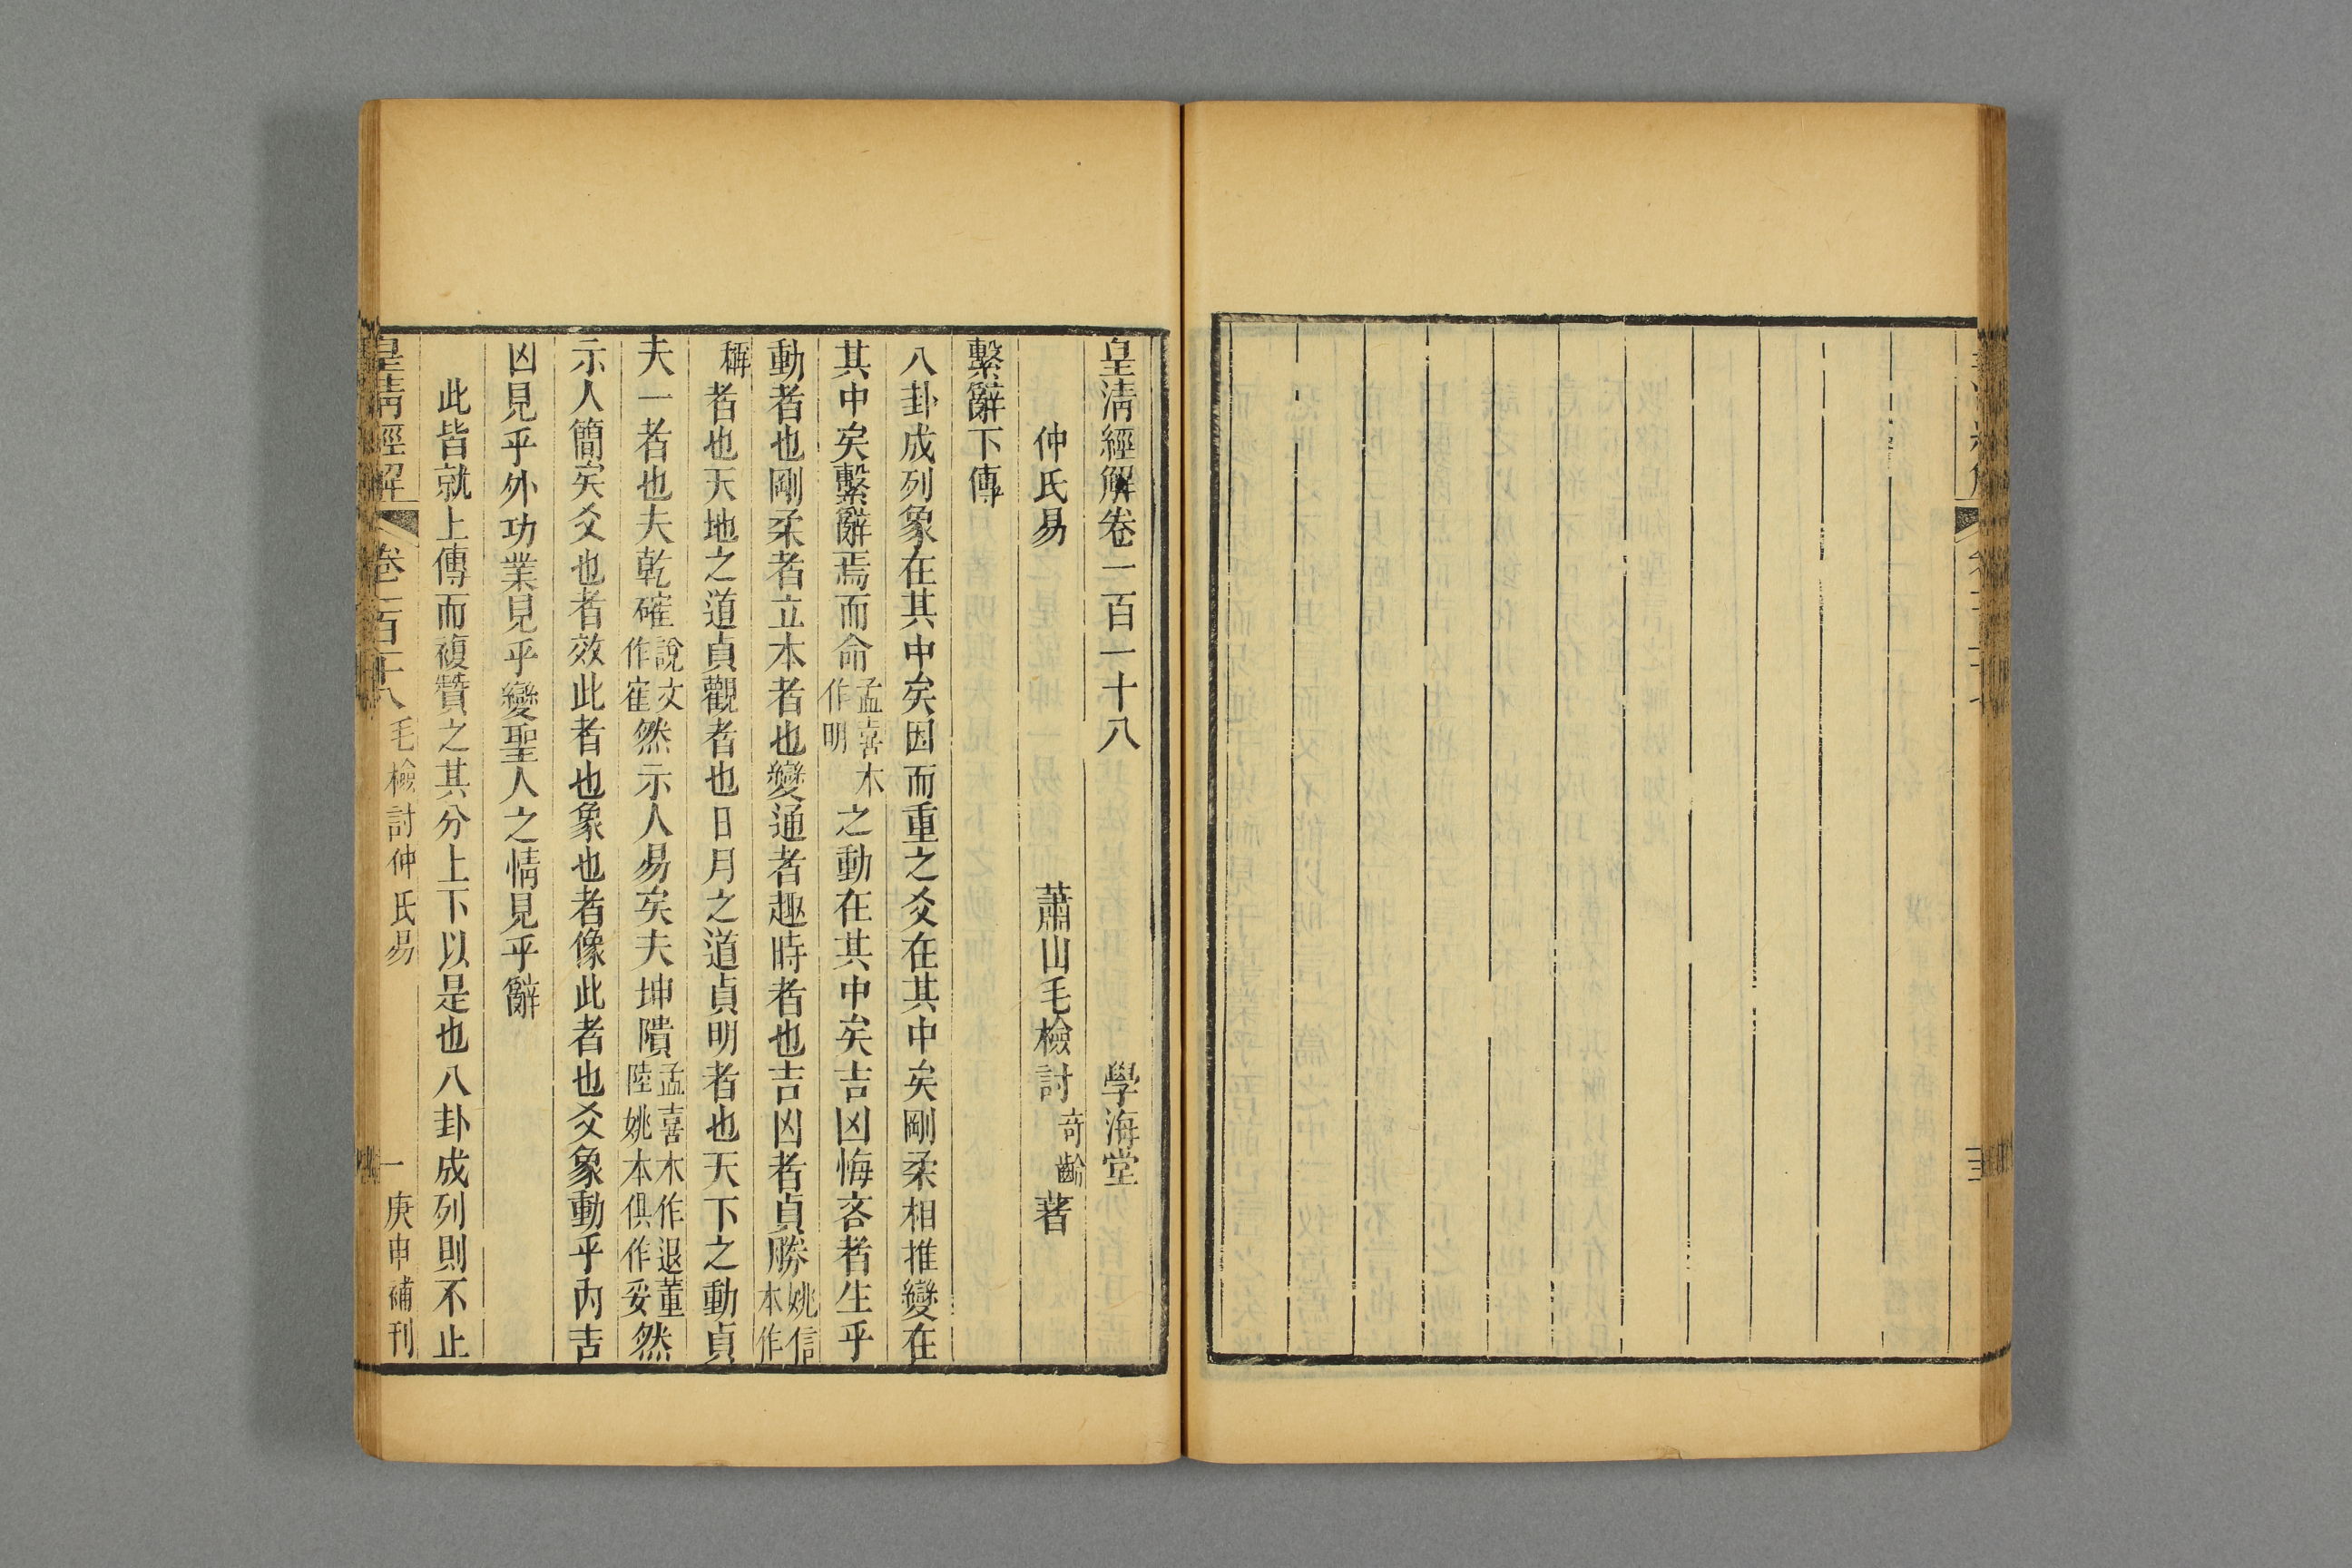 皇清經解卷一百一十八 學海堂
仲氏易 蕭山毛檢討奇齡著
繫辭下傳
八卦成列象在其中矣因而重之爻在其中矣剛柔相推變在
其中矣繫辭焉而命孟喜本作明之動在其中矣吉凶悔吝者生乎
動者也剛柔者立本者也變通者趣時者也吉凶者貞勝姚信本作
稱者也天地之道貞觀者也日月之道貞明者也天下之動貞
夫一者也夫乾確說文作寉然示人易矣夫坤隤孟喜本作退董陸姚本俱作妥然
示人簡矣爻也者效此者也象也者像此者也爻象動乎內吉
凶見乎外功業見乎變聖人之情見乎辭
此皆就上傳而複贊之其分上下以是也八卦成列則不止
皇清經解 卷一百十八 毛檢討仲氏易 一 庚申補刊